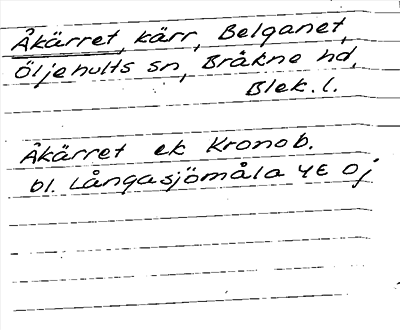 Åkärret, kärr, Belganet,
Öljehults sn, Bräkne hd,
Blek. l.
Åkärret ek Kronob.
bl. Långasjömåla 4E Oj